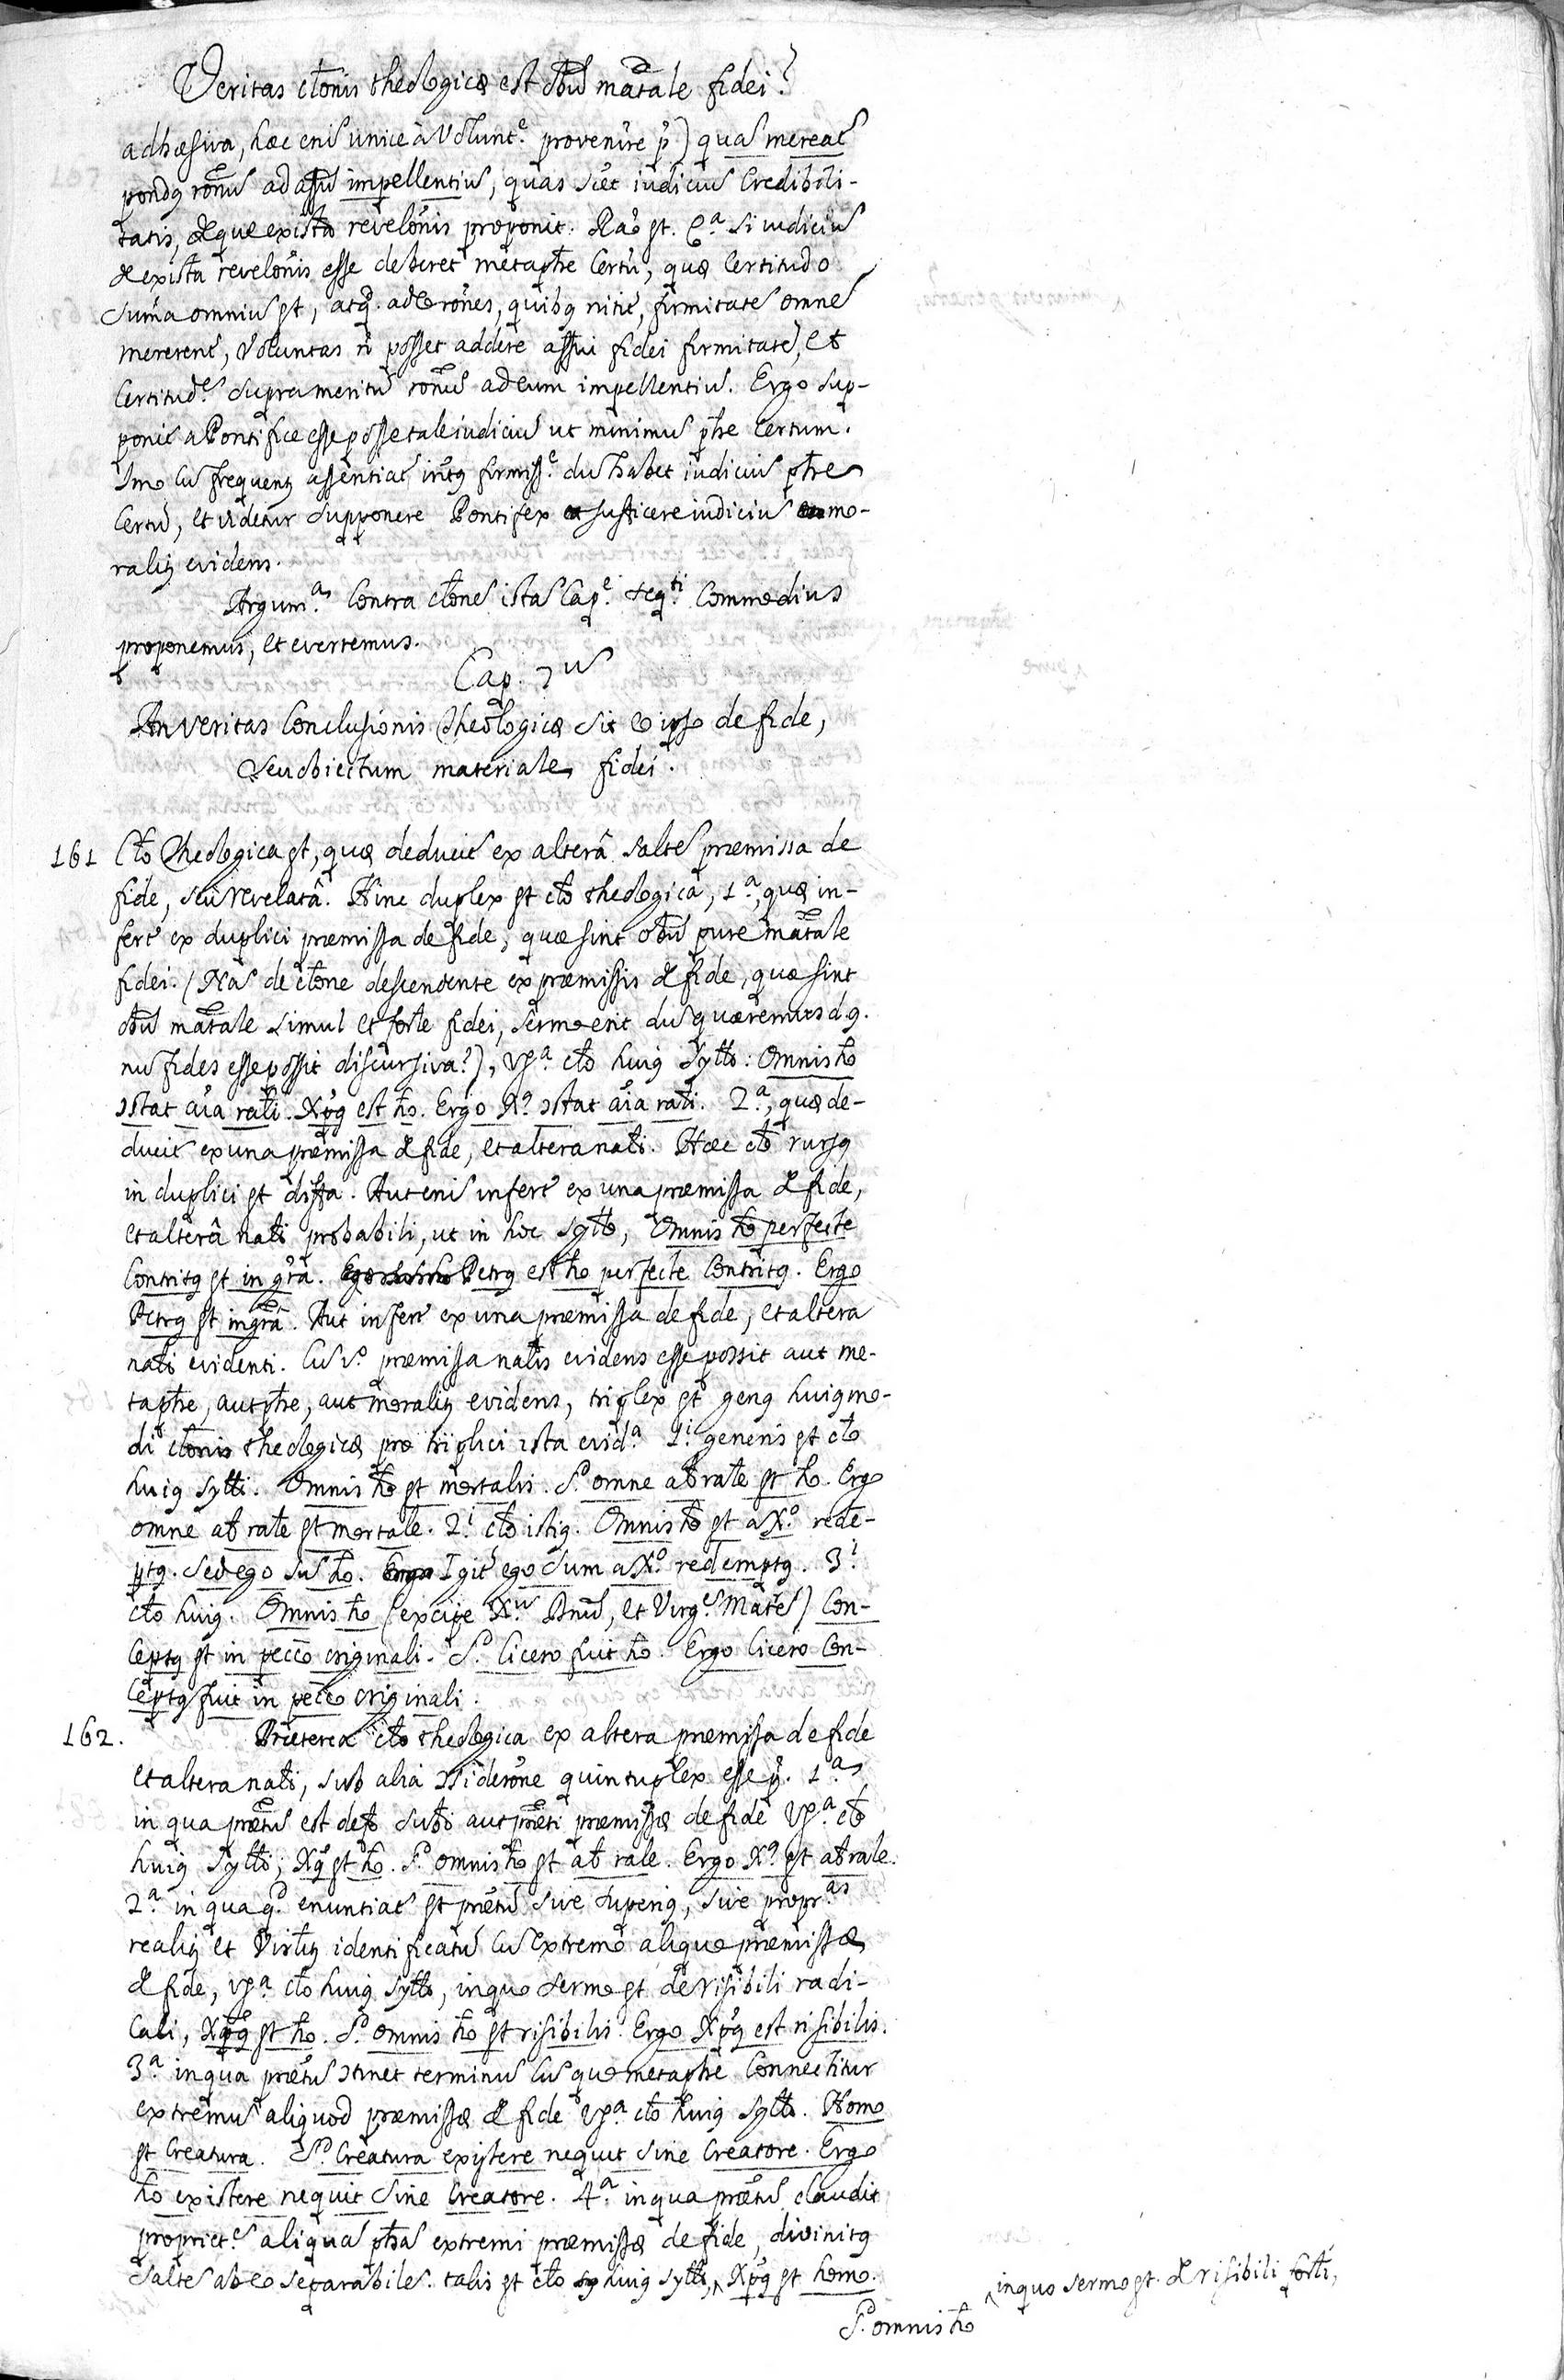 Veritas ctonis theologicæ est obiũ mãtale fidei?
adhæsiva, hæc enĩ unice à Volunt.e provenire p̃) quã mereat̃
pondq ronũ ad assũ impellentiũ, quas scèt iudiciũ Credibili-
tatis, de que exista revelonis proponit. Rao st. Ca. si iudiciũ
de exista revelonis esse deberet metaphe Certũ, quæ Certitudo
suma omniũ st, atq. ad eo rones, quibq nitit̃, firmitatẽ omnẽ
mererent̃, Voluntas ñ posset addere assui fidei firmitatẽ, et
Certitud.ẽ supra meritũ ronũ ad eum impellentiũ. Ergo sup-
ponit̃ a Pontifice esse posse tale iudiciũ ut minimũ phe Certum.
Imo cũ frequenq assentiat̃ intq firmiss.e dũ habet iudiciũ phe
Certũ, et videtur supponere Pontifex sufficere iudiciũ mo-
raliq evidens.
Argum.a Contra ctonẽ istã Cap.e seq.ti Commodius
proponemus, et evertemus.
Cap. 7ũ
An veritas Conclusionis Theologicæ sit eo ipso de fide,
seu obiectum materiale fidei.
161 Cto Theologica st, quæ deducit̃ ex alterâ saltẽ præmissa de
fide, seu revelatâ. Hinc duplex st cto theologica, 1.a, quæ in-
fert̃ ex duplici præmissa de fide, quæ sint obiũ pure mãtale
fidei. (Nã de ctone descendente ex præmissis de fide, quæ sint
obiũ mãtale simul et forle fidei, sermo erit dũ quæremus d. 9.
nũ fides esse possit discursiva?), Vg.a cto huiq sytti: Omnis ho
ↄstat aĩa rati. Xpq est ho. Ergo Xq ↄstat aĩa rati. 2.a, quæ de-
ducit̃ ex una præmissa de fide, et altera nati. Hæc cto rursq
in duplici st diffa. Aut enĩ infert̃ ex una præmissa de fide,
et alterâ nati probabili, ut in hoc sytto, Omnis ho perfecte
Contritq st in grã. Petrq est ho perfecte Contritq. Ergo
Petrq st in grã. Aut infert̃ ex una præmissa de fide, et altera
nati evidenti. Cũ v.o præmissa natis evidens esse possit aut me-
taphe, aut phe, aut moraliq evidens, triplex st genq huiqmo-
di ctonis theologicæ pro triplici ista evid.a 1.i generis st cto
huiq sytti. Omnis ho st mortalis. S. omne at rate st ho. Ergo
omne at rate st mortale. 2.i cto istiq. Omnis ho st a Xo. rede-
ptq. Sed ego sũ ho. Igit̃ ego sum a Xo. redemptq. 3.i
cto huiq. Omnis ho (excipe Xũ Dnũ, et Virg.ẽ Matrẽ) Con-
Ceptq st in pecco originali. S. Cicero fuit ho. Ergo Cicero Con-
Ceptq fuit in pecco originali.
162. Præterea cto theologica ex altera præmissa de fide
et altera nati, sub alia ↄsiderone quintuplex esse p̃. 1.a
in qua prætũ est defo subti aut præti præmissæ de fide Vg.a cto
huiq sytti; Xq st ho. S. omnis ho st at rale. Ergo Xq st at rale.
2.a in qua qd. enuntiat̃ st prætũ sive superiq, sive propr.as
realiq et Virtiq identificatũ Cũ extremo aliquo præmissæ
de fide, vg.a cto huiq sytti, in quo sermo st de risibili radi-
Cali, Xpq st ho. S. omnis ho st risibilis. Ergo Xpq est risibilis.
3.a in qua prætũ ↄtinet terminũ Cũ quo metaphe Connectitur
extremũ aliquod præmissæ de fide Vg.a cto huiq sytti. Homo
st Creatura. S. Creatura existere nequit sine Creatore. Ergo
ho existere nequit sine Creatore. 4.a in qua prætũ claudit
propriet.ẽ aliquã phã extremi præmissæ de fide, divinitq
saltẽ ab eo separabilẽ. talis st cto huiq sytti, ^ Xpq st homo.
^ in quo sermo st de risibili forli,
S. omnis ho